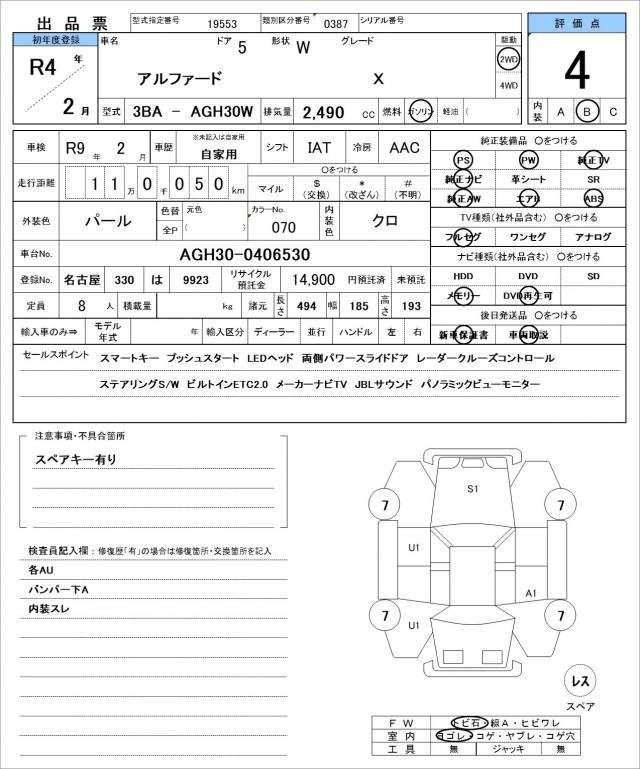 出品票 型式指定番号 19553 類別区分番号 0387 シリアル番号 評価点
初年度登録 車名 ドア 5 形状 W グレード 駆動
R4 年 2 月 アルファード X 2WD 4WD 4
型式 3BA － AGH30W 排気量 2,490 CC 燃料 ガソリン 軽油 ( ) 内装 A B C
車検 R9 年 2 月 車歴 ※未記入は自家用 自家用 シフト IAT 冷房 AAC
純正装備品 〇をつける
走行距離 1 1 万 0 千 0 5 0 km 〇をつける
マイル $ (交換) * (改ざん) # (不明)
PS PW 純正TV
純正ナビ 革シート SR
純正AW エアB ABS
外装色 パール 色替 全P 元色 ( ) カラーNo. 070 内装色 クロ
TV種類(社外品含む) 〇をつける
フルセグ ワンセグ アナログ
車台No. AGH30-0406530
ナビ種類(社外品含む) 〇をつける
登録No. 名古屋 330 は 9923 リサイクル預託金 14,900 円預託済 未預託
HDD DVD SD
定員 8 人 積載量 kg 諸元 長さ 494 幅 185 高さ 193
メモリー DVD再生可
後日発送品 〇をつける
輸入車のみ⇒ モデル年式 年 輸入区分 ディーラー 並行 ハンドル 左 右
新車保証書 車両取説
セールスポイント スマートキー プッシュスタート LEDヘッド 両側パワースライドドア レーダークルーズコントロール
ステアリングS/W ビルトインETC2.0 メーカーナビTV JBLサウンド パノラミックビューモニター
注意事項・不具合箇所
スペアキー有り
検査員記入欄：修復歴「有」の場合は修復箇所・交換箇所を記入
各AU
バンパー下A
内装スレ
S1
7 7
U1
A1
U1
7 7
レス
スペア
FW トビ石・線A・ヒビワレ
室内 ヨゴレ・コゲ・ヤブレ・コゲ穴
工具 無 ジャッキ 無